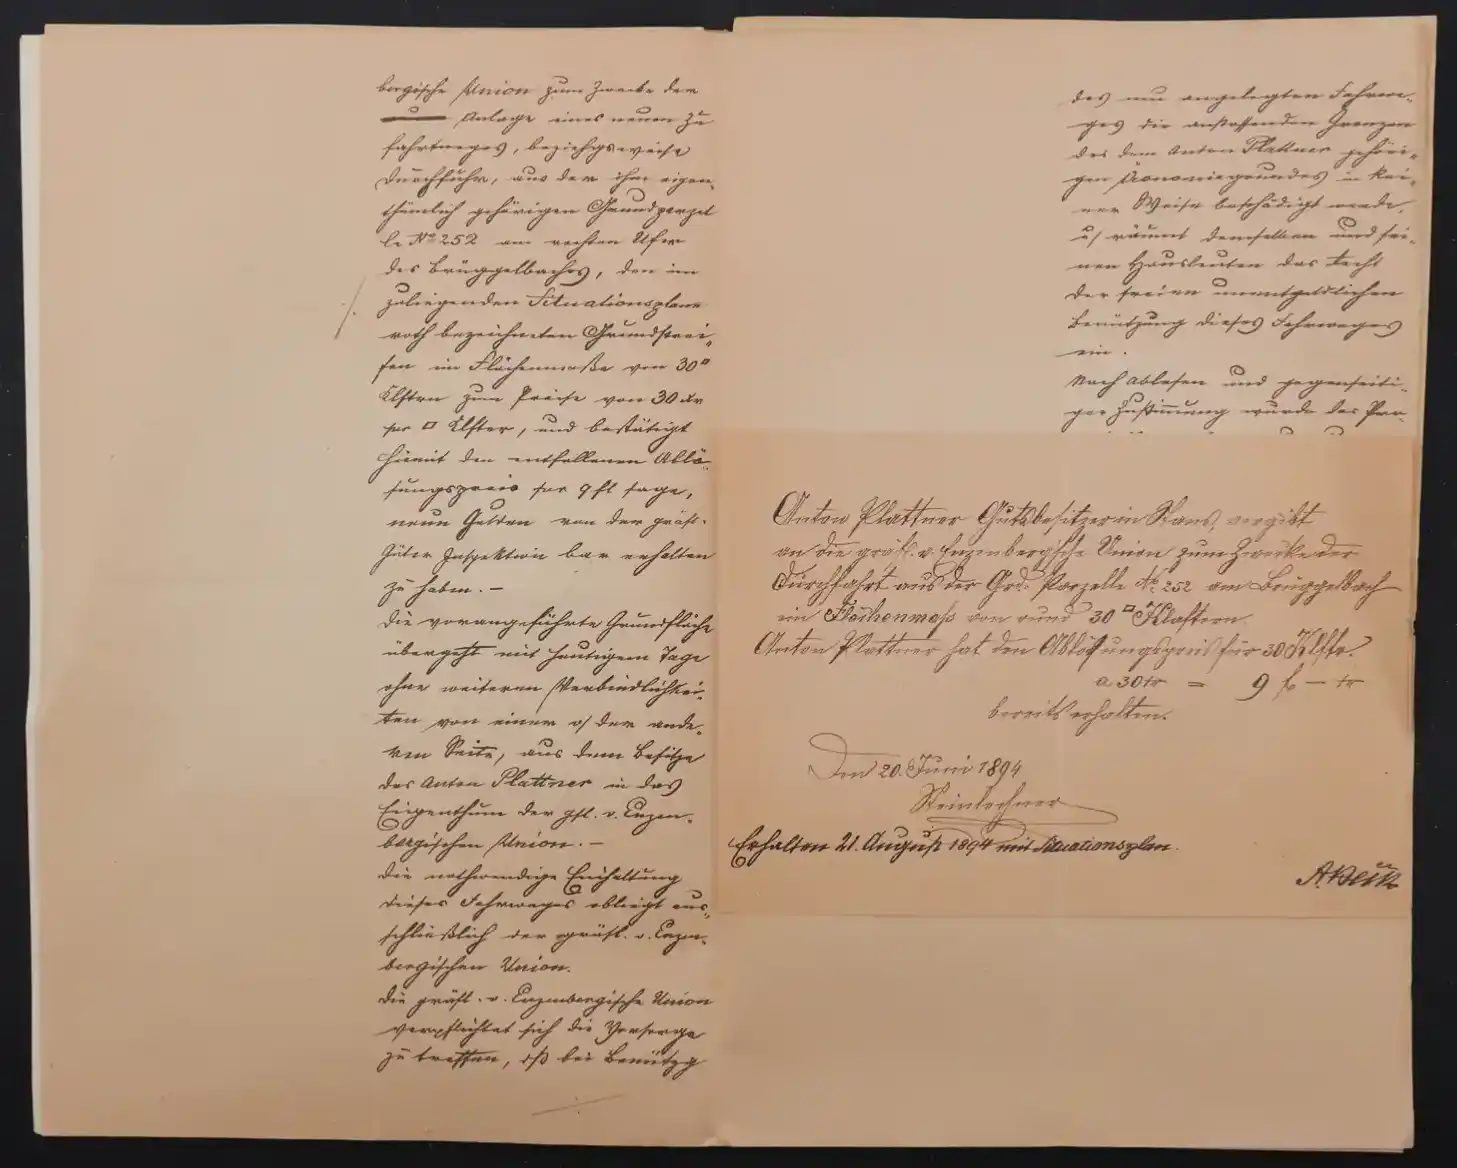 bergische Union zum Zwecke der
Anlage eines neuen Zu
fahrtweges, beziehgsweise
Durchfuhr, aus der ihm eigen„
thümlich gehörigen Grundparzel
le No 252 am rechten Ufer
des Brüggelbaches, den im
zuliegenden Situationsplane
roth bezeichneten Grundstrei„
fen im Flächenmaße von 30 □
Klftrn zum Preise von 30 Xr
per □ Klfter, und bestätigt
hiemit den entfallenen Ablö„
sungspreis per 9 fl sage,
neun Gulden von der gräfl.
Güter Inspektion bar erhalten
zu haben. –
Die vorangeführte Grundfläche
übergeht mit heutigem Tage
ohne weiteren Verbindlichkei„
ten von einer o/ der ande„
ren Seite, aus dem Besitze
des Anton Plattner in das
Eigenthum der gfl. v. Enzen„
bergischen Union. –
Die nothwendige Einhaltung
dieses Fahrweges obliegt aus„
schließlich der gräfl. v. Enzen„
bergischen Union.
Die gräfl. v. Enzenbergische Union
verpflichtet sich die Vorsorge
zu treffen, dß bei Benützg
des neu angelegten Fahrwe„
ges die anstossenden Grenzen
des dem Anton Plattner gehöri„
gen Öconomiegrundes in kei„
ner Weise beschädigt werde,
u/ räumt demselben und sei„
nen Hausleuten das Recht
der freien unentgeldlichen
Benützung dieses Fahrweges
ein.
Nach Ablesen und gegenseiti„
ger Zustimmung wurde das Pro„
Anton Plattner Gutsbesitzer in Stans, vergibt
an die gräfl. v. Enzenberg'sche Union zum Zwecke der
Durchfahrt aus der Grd. Parzelle No. 252 am Brüggelbach
im Flächenmaß von rund 30 □ Klaftern.
Anton Plattner hat den Ablösungspreis für 30 Klftr.
a 30 xr = 9 fl – xr
bereits erhalten.
Den 20. Juni 1894
Steinlechner
Erhalten 21. August 1894 mit Situationsplan.